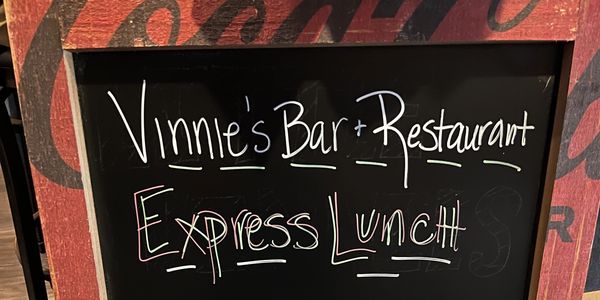 Vinnie's Bar + Restaurant
Express Lunch